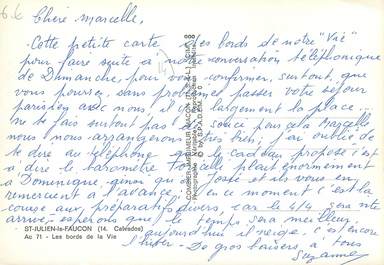 Chère Marcelle,
Cette petite carte des bords de notre "Vie"
pour faire suite à notre conversation téléphonique
de Dimanche, pour vous confirmer, surtout, que
vous pouvez, sans problème, passer votre séjour
parisien avec nous, il y a largement la place...
ne te fais surtout pas de souci pour cela Marcelle
nous nous arrangerons très bien; j'ai oublié de
te dire au téléphone que le cadeau proposé c'est
à dire le baromètre, plaît énormément
à Dominique,
remercient à l'avance. en ce moment c'est la
course aux préparatifs divers, car le 4/4 sera vite
arrivé, espérons que le temps sera meilleur,
aujourd'hui il neige, c'est encore
l'hiver - De gros baisers à tous
Suzanne
ST-JULIEN-le-FAUCON (14. Calvados)
Au 71 - Les bords de la Vie
COMBIER IMPRIMEUR MACON